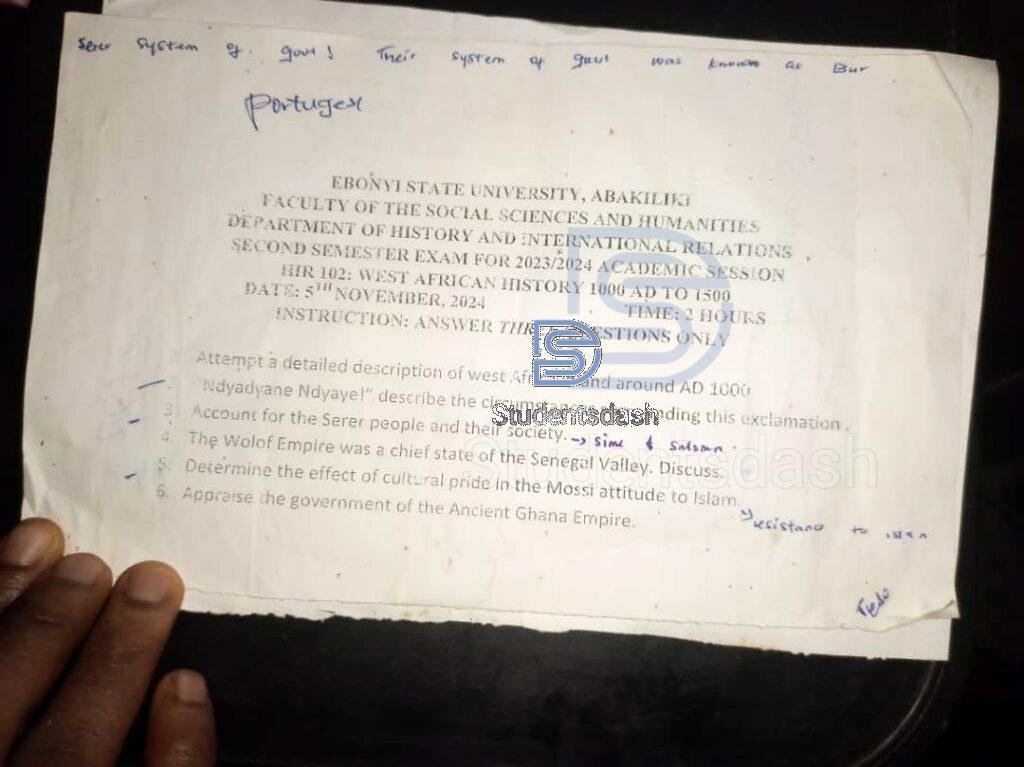 Serer system of govt! Their system of govt was known as Bur
Portugese
EBONYI STATE UNIVERSITY, ABAKILIKI
FACULTY OF THE SOCIAL SCIENCES AND HUMANITIES
DEPARTMENT OF HISTORY AND INTERNATIONAL RELATIONS
SECOND SEMESTER EXAM FOR 2023/2024 ACADEMIC SESSION
HIR 102: WEST AFRICAN HISTORY 1000 AD TO 1500
DATE: 5TH NOVEMBER, 2024 TIME: 2 HOURS
INSTRUCTION: ANSWER THREE QUESTIONS ONLY
Attempt a detailed description of west around AD 1000
2 "Ndyadyane Ndyaye!" describe the circumstances this exclamation.
3. Account for the Serer people and their society. → Sine &
4. The Wolof Empire was a chief state of the Senegal Valley. Discuss.
5. Determine the effect of cultural pride in the Mossi attitude to Islam.
6. Appraise the government of the Ancient Ghana Empire.
resistance to islam
Studentsdash
Studentsdash